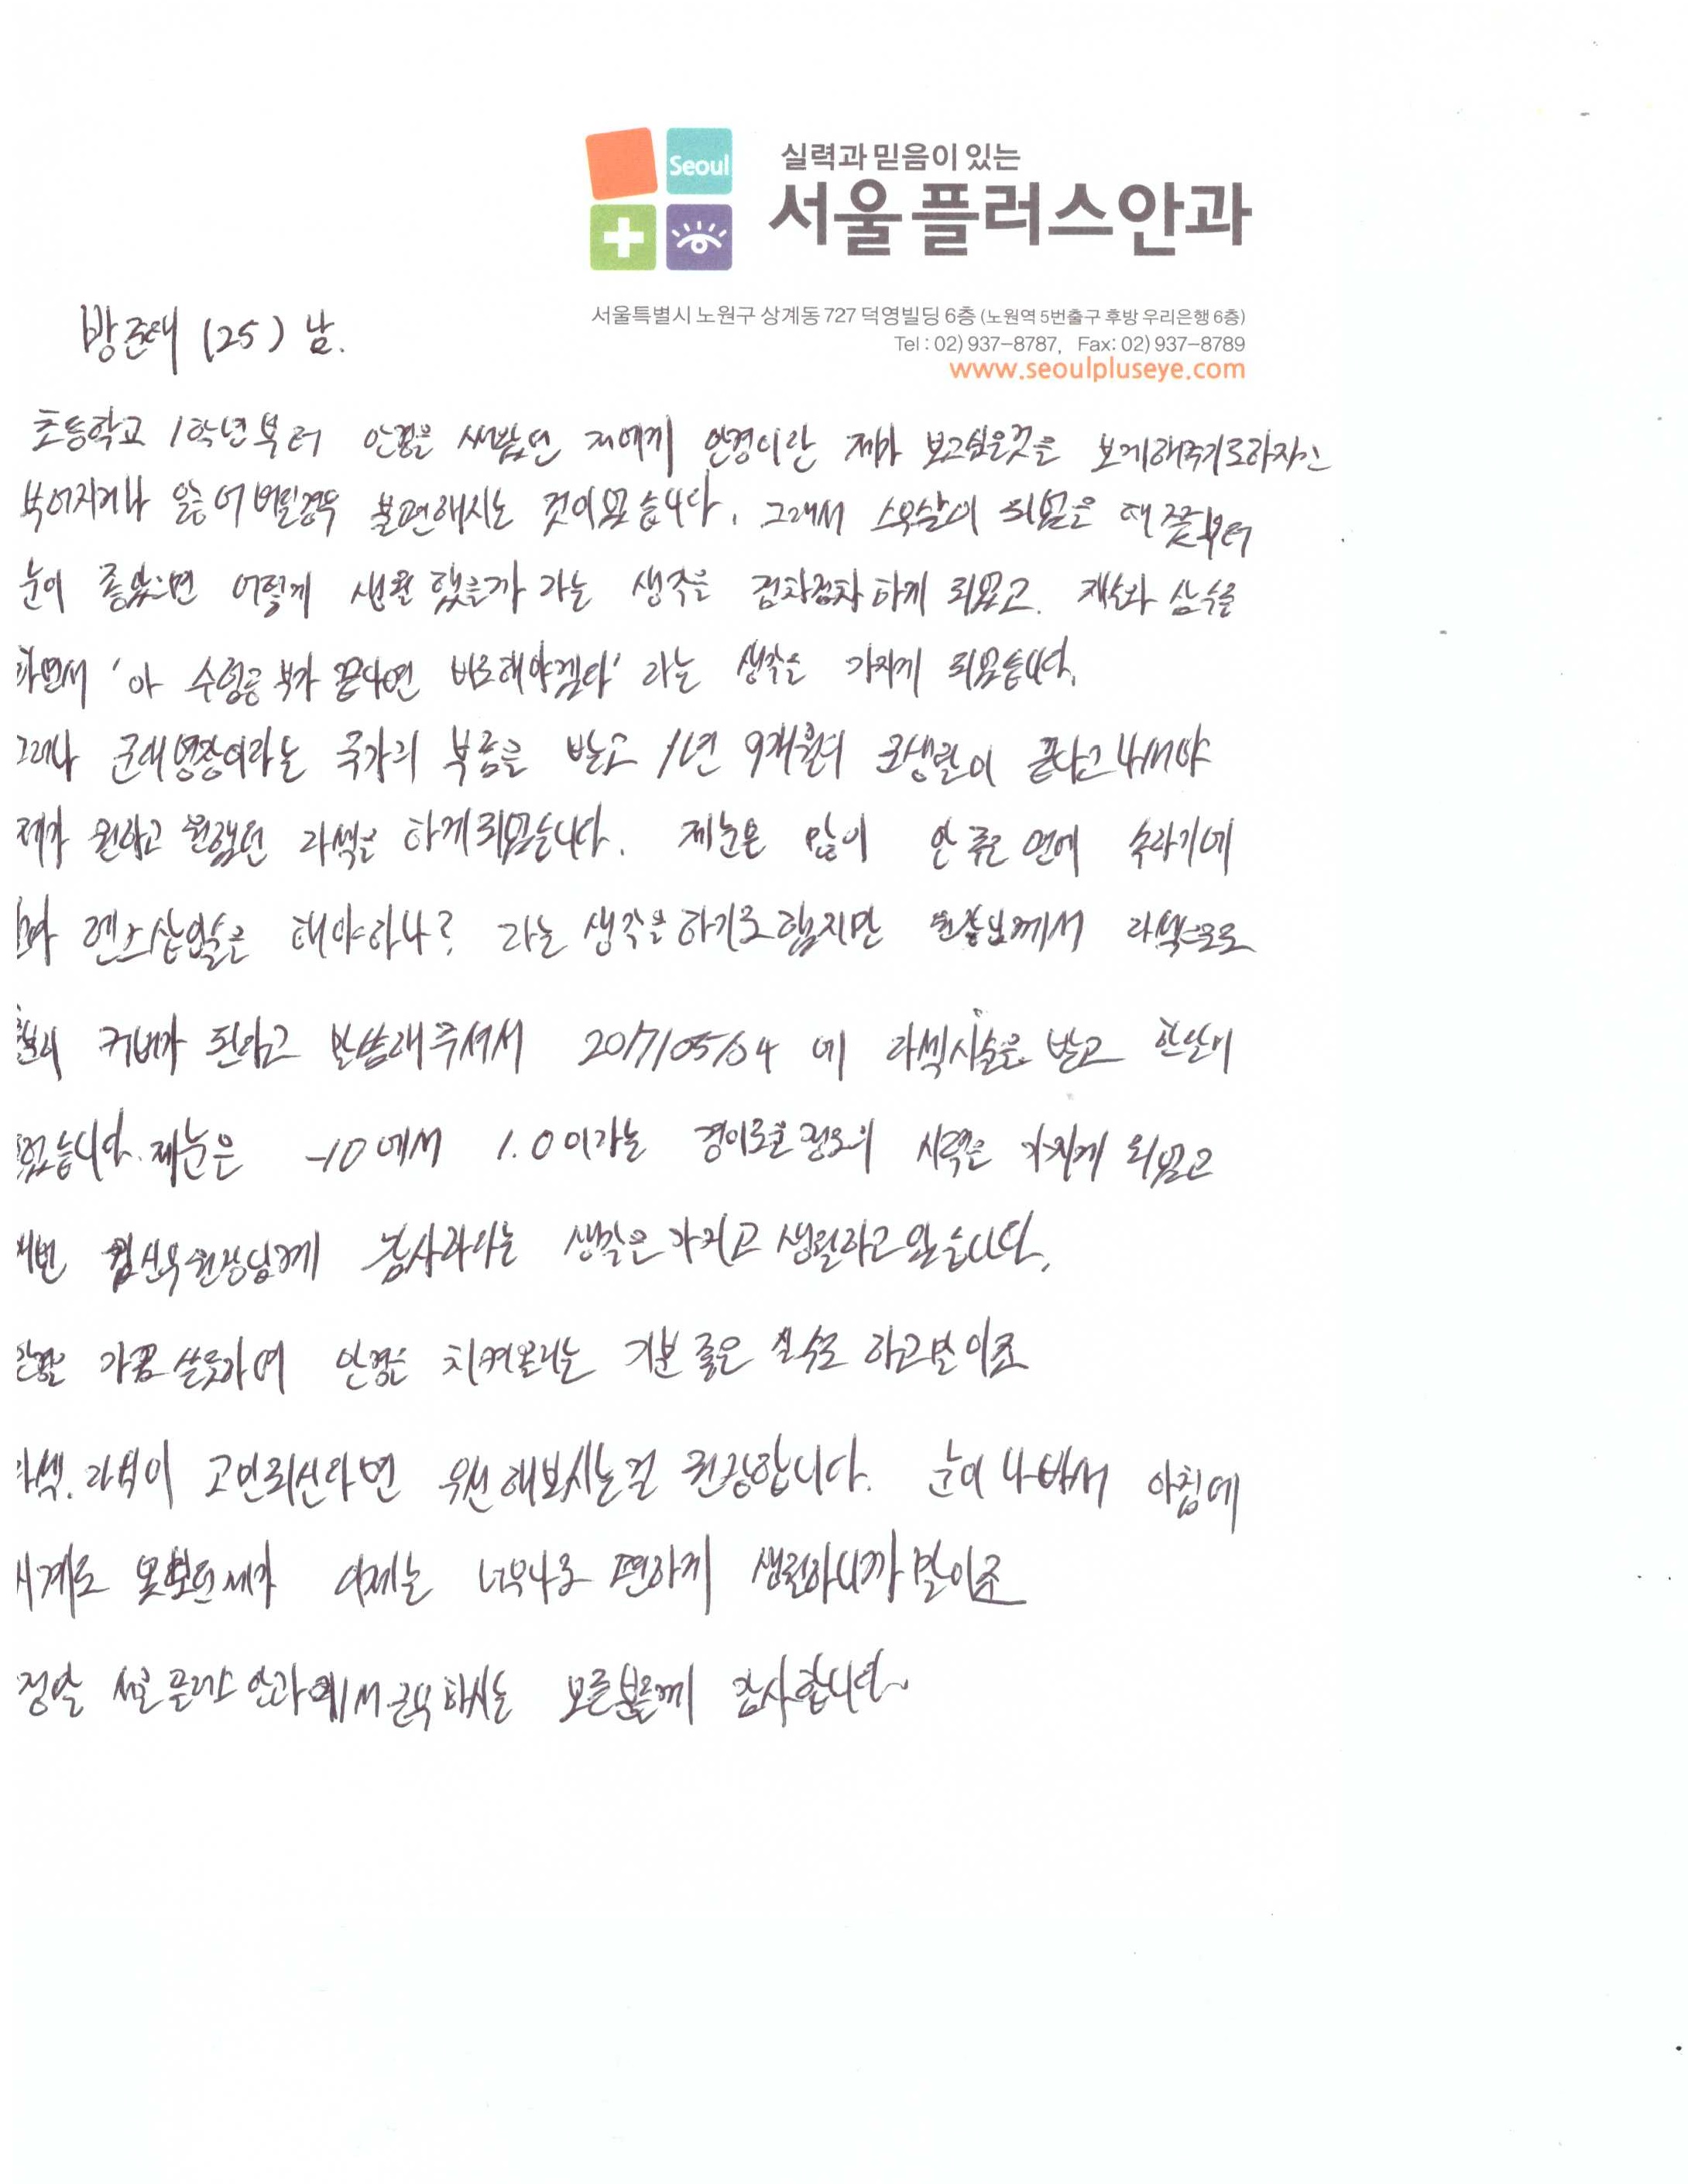 Seoul
실력과 믿음이 있는
서울플러스안과
서울특별시 노원구 상계동 727 덕영빌딩 6층 (노원역 5번출구 후방 우리은행 6층)
Tel : 02) 937-8787, Fax: 02) 937-8789
www.seoulpluseye.com
방준태 (25) 남.
초등학교 1학년부터 안경을 써왔던 저에게 안경이란 제가 보고싶은것을 보게해주기도하지만
부어지거나 잃어버릴경우 불편해지는 것이였습니다. 그래서 스무살이 되었을 때쯤부터
눈이 좋았으면 어떻게 생활했을까 라는 생각을 점차점차 하게 되었고. 재수와 삼수를
하면서 '아 수험공부가 끝나면 바로해야겠다' 라는 생각을 가지게 되었습니다.
그러나 군대영장이라는 국가의 부름을 받고 1년 9개월의 군생활이 끝나고 나서야
제가 원하고 원했던 라섹을 하게되었습니다. 제눈은 많이 안좋은 편에 속하기에
렌즈삽입술을 해야하나? 라는 생각을하기도했지만 원장님께서 라섹으로
커버가 된다고 말씀해주셔서 2017/05/04 에 라섹시술을 받고 한달이
제눈은 -10에서 1.0이라는 경이로운정도의 시력을 가지게 되었고
매번 원장님께 감사하다는 생각을 가지고 생활하고있습니다.
가끔 샤롯하며 안경을 치켜올리는 기분 좋은 실수도 하고말이죠
라섹. 라식이 고민되신다면 우선해보시는걸 권장합니다. 눈이 나빠서 아침에
시계도 못보던제가 이제는 너무나도 편하게 생활하니까말이죠
정말 서울플러스안과에서 근무하시는 모든분들께 감사합니다.